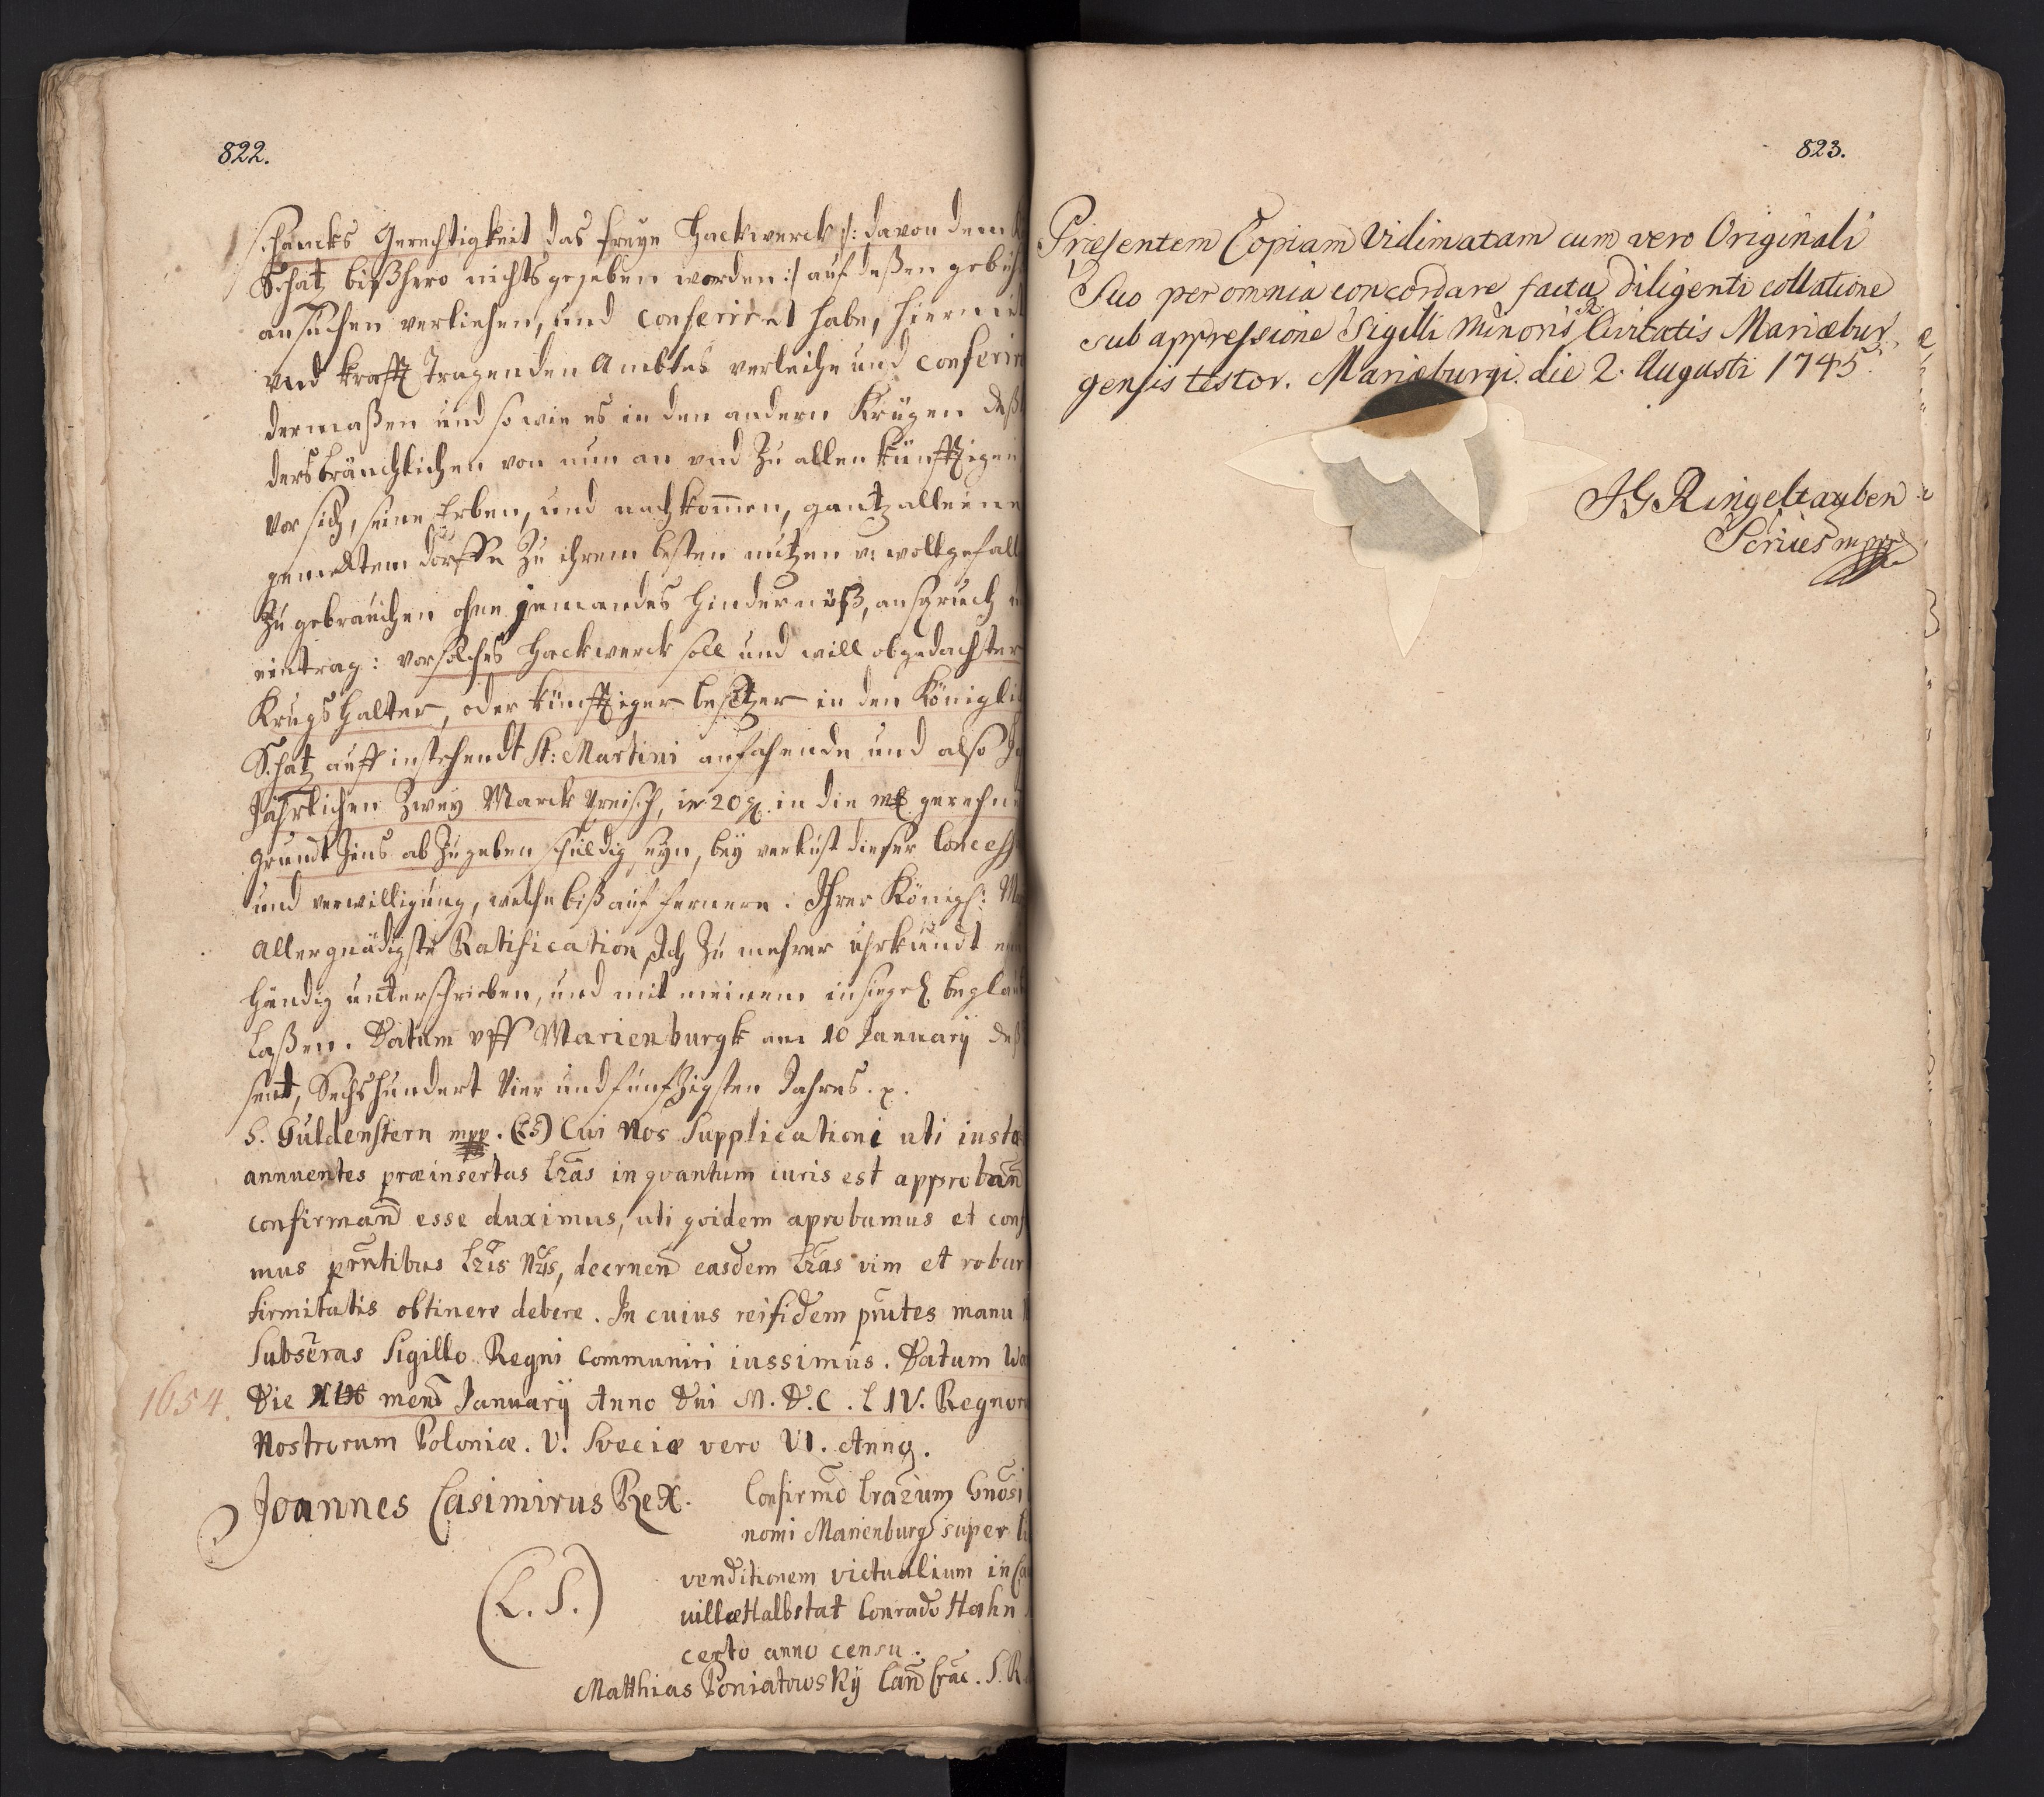 822.
schancks Gerechtigkeit das freye Hackwerck /: davon dem
Schatz bißhero nichts gegeben worden :/ auf deßen gebüh
ansuchen verliehen, und conferiret habe, hiermit
vnd krafft Tragenden Ambtes verleihe und conferir
dermaßen und so wie es in den andern Krügen deß
ders bräuchlichen von nun an vnd Zu allen künfftigen
vor sich, seine Erben, und nachkom̅en, gantz alleine
gemeltem dorffe Zu ihrem besten nutzen v: wollgefall
Zu gebrauchen ohne jemandes hindernüß, anspruch
eintrag: vor solches Hackwerck soll und will obgedachter
Krugs halter, oder künfftiger besitzer in den Königli
Schatz auff instehendt St: Martini anfahende und also
Jährlichen Zwey Marck Preisch, ie 20 g. in die mk gerechne
grundt Zins ab Zugeben schuldig seyn, bey verlust dieser Concess
und verwilligung, welche biß auf fernere. Ihrer Königl: M
Allergnädigste Ratification, Ich Zu mehrer uhrkundt
händig unterschrieben, und mit meinem insiegel beglau
laßen. Datum vff Marienburgk am 10 January deß
sent, Sechshundert Vier und funfzigsten Jahres. x.
S. Guldenstern mpp. (LS) Cui Nos Supplicationi uti iusta
annuentes præinsertas Lr̄as in qvantum iuris est approban̄
confirman̄ esse duximus, uti qvidem aprobamus et conf
mus prn̄tibus Lr̄is Nr̄is, decernen̄ easdem Lr̄as vim et robur
firmitatis obtinere debere. In cuius rei fidem prn̄tes manu
Subscr̄as Sigillo Regni communiri iussimus. Datum Wa
1654. Die mens January Anno Dni M. D. C. LIV. Regnor
Nostrorum Poloniæ. V. Sveciæ vero VI. Anno.
Joannes Casimirus Rex. Confirmō Lrarum Gnōsi
nomi Marienburg super li
(L. S.) venditionem victualium in
villæ Halbstat Conrado Hahn
certo anno censu.
Matthias Poniatowsky Can̄ Crac. S. R
823.
Præsentem Copiam Vidimatam cum vero Originali
Suo per omnia concordare facta diligenti collatione
sub appressione Sigilli Minoris Civitatis Mariæbur
gensis testor. Mariæburgi. die 2. Augusti 1745.
J G Ringeltauben
Scriües mpp